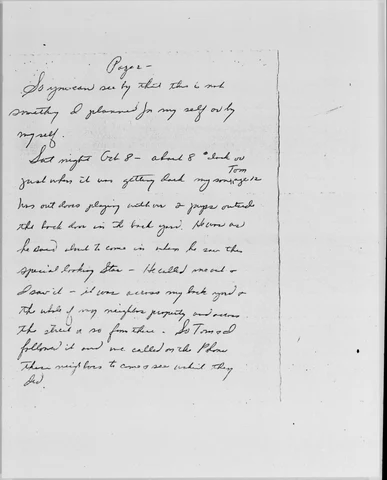 Page 2 -
So you can see by that this is not
something I planned for my self or by
my self.
Sat night Oct 8 - about 8 o'clock or
just when it was getting dark my son Tom age 12
was out doors playing with our 2 pups outside
the back door in the back yard. He was as
he said about to come in when he saw this
special looking Star - He called me out &
I saw it - it was across my back yard &
the whole of my neighbors property and across
the street or so from there. So Tom & I
followed it and we called on the Phone
three neighbors to come & see which they
did.